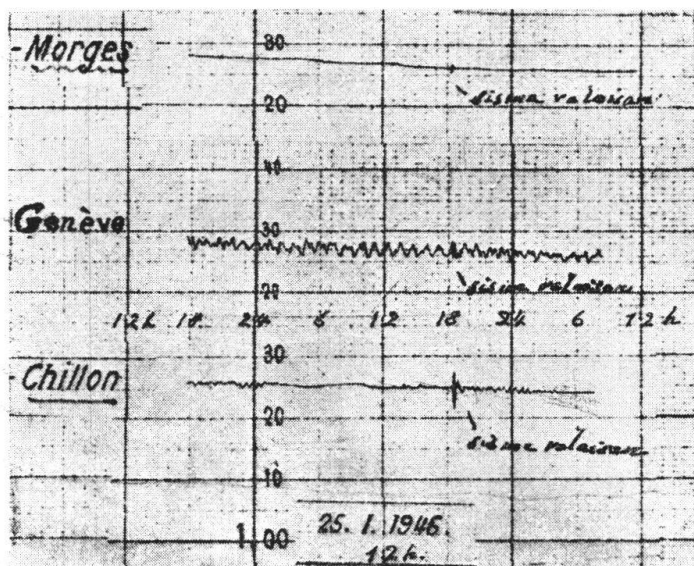 - Morges
30
sisme valaisan
20
40
Genève
30
sisme valaisan
20
12h 18 24 6 12 18 24 6 12h
30
- Chillon
20
sisme valaisan
10
1.00
25. 1. 1946.
12h.